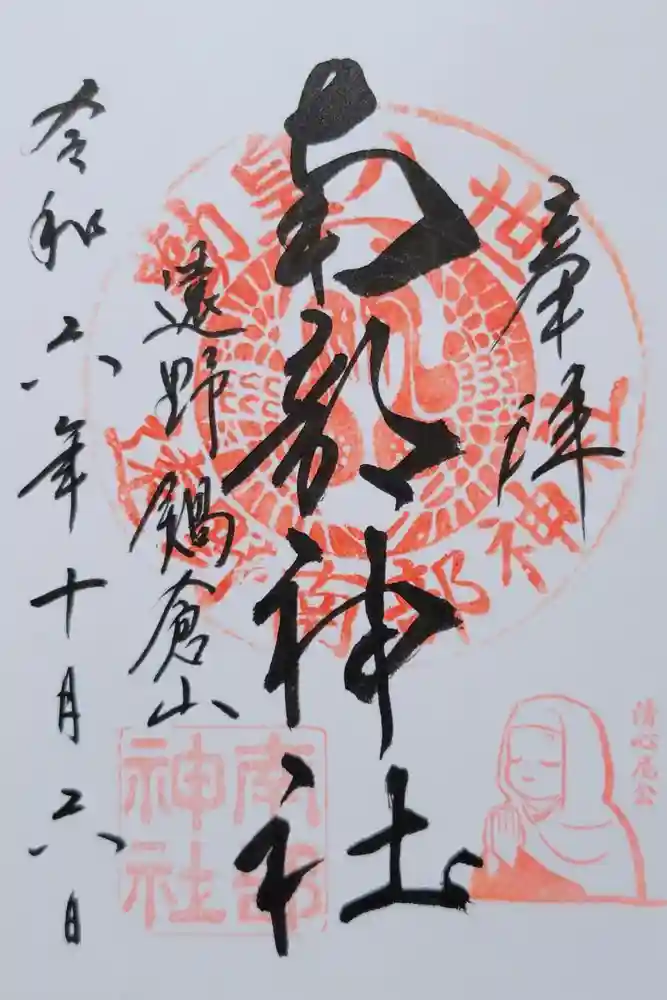 奉拝
南部神社
遠野鍋倉山
令和六年十月六日
南部
神社
清心尼公